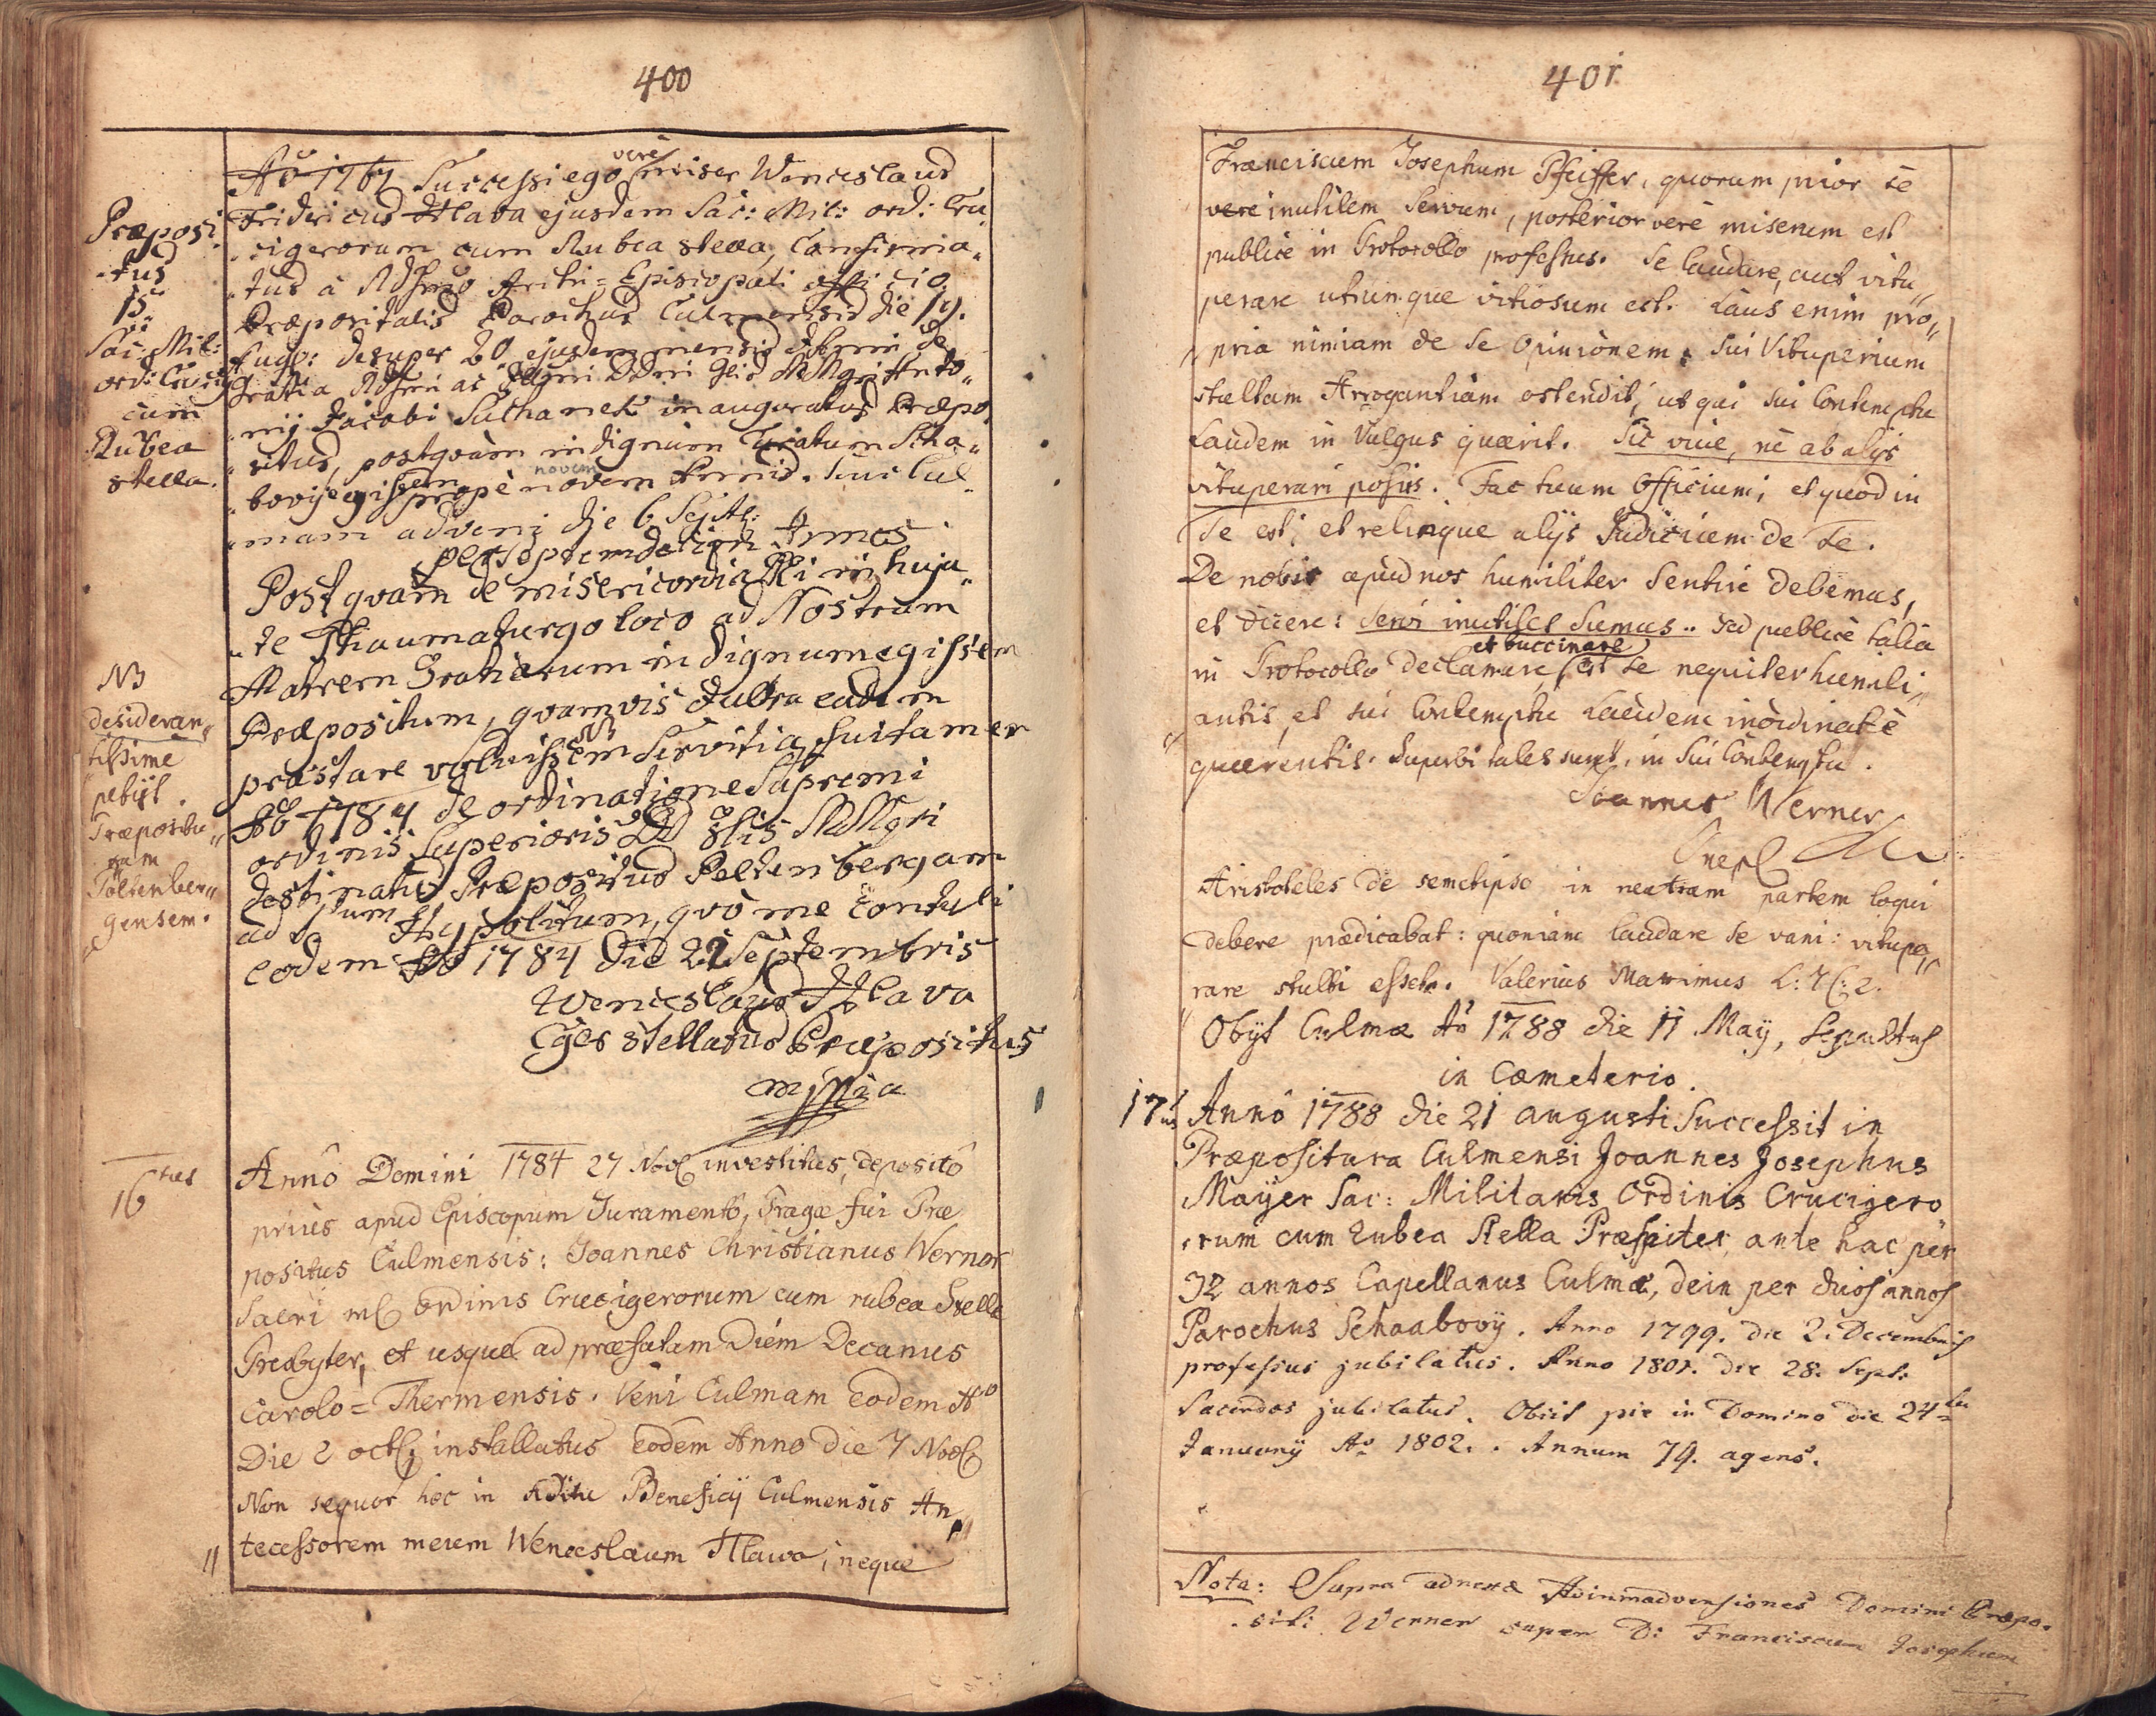 400
Præposi
tus
15us
Sac: Mil:
ord: Crucig
cum
Rubea
stella.
Aô 1767 Successi ego verè miser Wenceslaus
Fridericus Hlava ejusdem Sac: Mil: ord: Cru„
„cigerorum cum Rubea stella, Confirma„
„tus à Archi=Episcopali officio
Præpositalis Parochus Culmensis die 19.
Aug: desuper 20 ejusdem mensis de
gratia ac
„nij Jacobi Suchanek inauguratus Præpo„
„situs, postquàm indignùm Curatum Scha„
„bovij egissem propè novem novem Annis. huic Cul„
„mam adveni die 6 Septbr:
per Annos
Postquam de misericordia in huju„
„te Thaumaturgo loco ad Nostram
Matrem Gratiarum indignum egissem
Præpositum, quamvis eadem
præstare voluissem NB servitia, fui tamen
Aô 1784 de ordinatione Supremi
ordinis Superioris
destinatus Præpositus Peltenbergam
ad Stum Hypolitum, quò me contuli
eodem Aô 1784 die 22 Septembris
Wenceslaus Hlava
Cger stellatus Præpositus
mppia
NB
desideran„
tissime
petijt
Præpositu„
ram
Poltenber„
gensem.
16tus
Annô Domini 1784 27 Nov investitus, depositô
priùs apud Episcopum Juramentô, Pragæ fui Præ
positus Culmensis: Joannes Christianus Werner
Sacri ml Ordinis Crucigerorum cum rubea Stella
Presbyter, et usque ad præfatam Diem Decanus
Carolo=Thermensis. Veni Culmam eodem Ao
Die 2 oct installatus eodem Anno die 7 Nov
Non sequor hoc in Aditu Beneficij Culmensis An„
„tecessorem meum Wenceslaum Hlawa, neque
401
Franciscum Josephum Pfeiffer, quorum prior se
vere inutilem servum, posterior verè miserum est
publicè in Protocollo professus. Se laudare, aut vitu„
perare utrumque vitiosum est. Laus enim pro„
„pria nimiam de se Opinionem, sui Vituperium
stultam Arrogantiam ostendit, ut qui sui Contemptu
Laudem in Vulgus quærit. Sic vive, nè ab alijs
vituperari possis. Fac tuum Officium, et quod in
Te est, et relinque alijs Judicium de te.
De nobis apud nos humiliter sentire debemus,
et dicere: servi inutiles sumus.. sed publicè talia
in Protocollo declamare, et buccinare est se nequiter humili„
„antis, et sui Contemptu Laudem inordinatè
quærentis. Superbi tales sunt, in sui Contemptu.
Joannes Werner
Aristoteles de semetipso in neutram partem loqui
debere prædicabat: quoniam laudare se vani: vitupe„
„rare stulti esset. Valerius Maximus L: 7 C: 2.
Obijt Culmæ Aô 1788 die 11 May, Sepultus
in Cæmeterio.
17us
Annô 1788 die 21 augusti Successit in
Præpositura Culmensi Joannes Josephus
Mayer Sac: Militaris Ordinis Crucigero
„rum cum rubea Stella Præsbiter, ante hac per
32 annos Capellanus Culmæ, dein per duos annos
Parochus Schaabovÿ. Anno 1799. die 2. Decembris
professus jubilatus. Anno 1801. die 28. Sept:
Sacerdos jubilatus. Obiit pie in Domino die 24ta
Januarij Ao 1802. . Annum 79. agens.
Nota: Supra adnexæ Animadversiones Domini Præpo„
„siti Werner super D: Franciscum Josephum